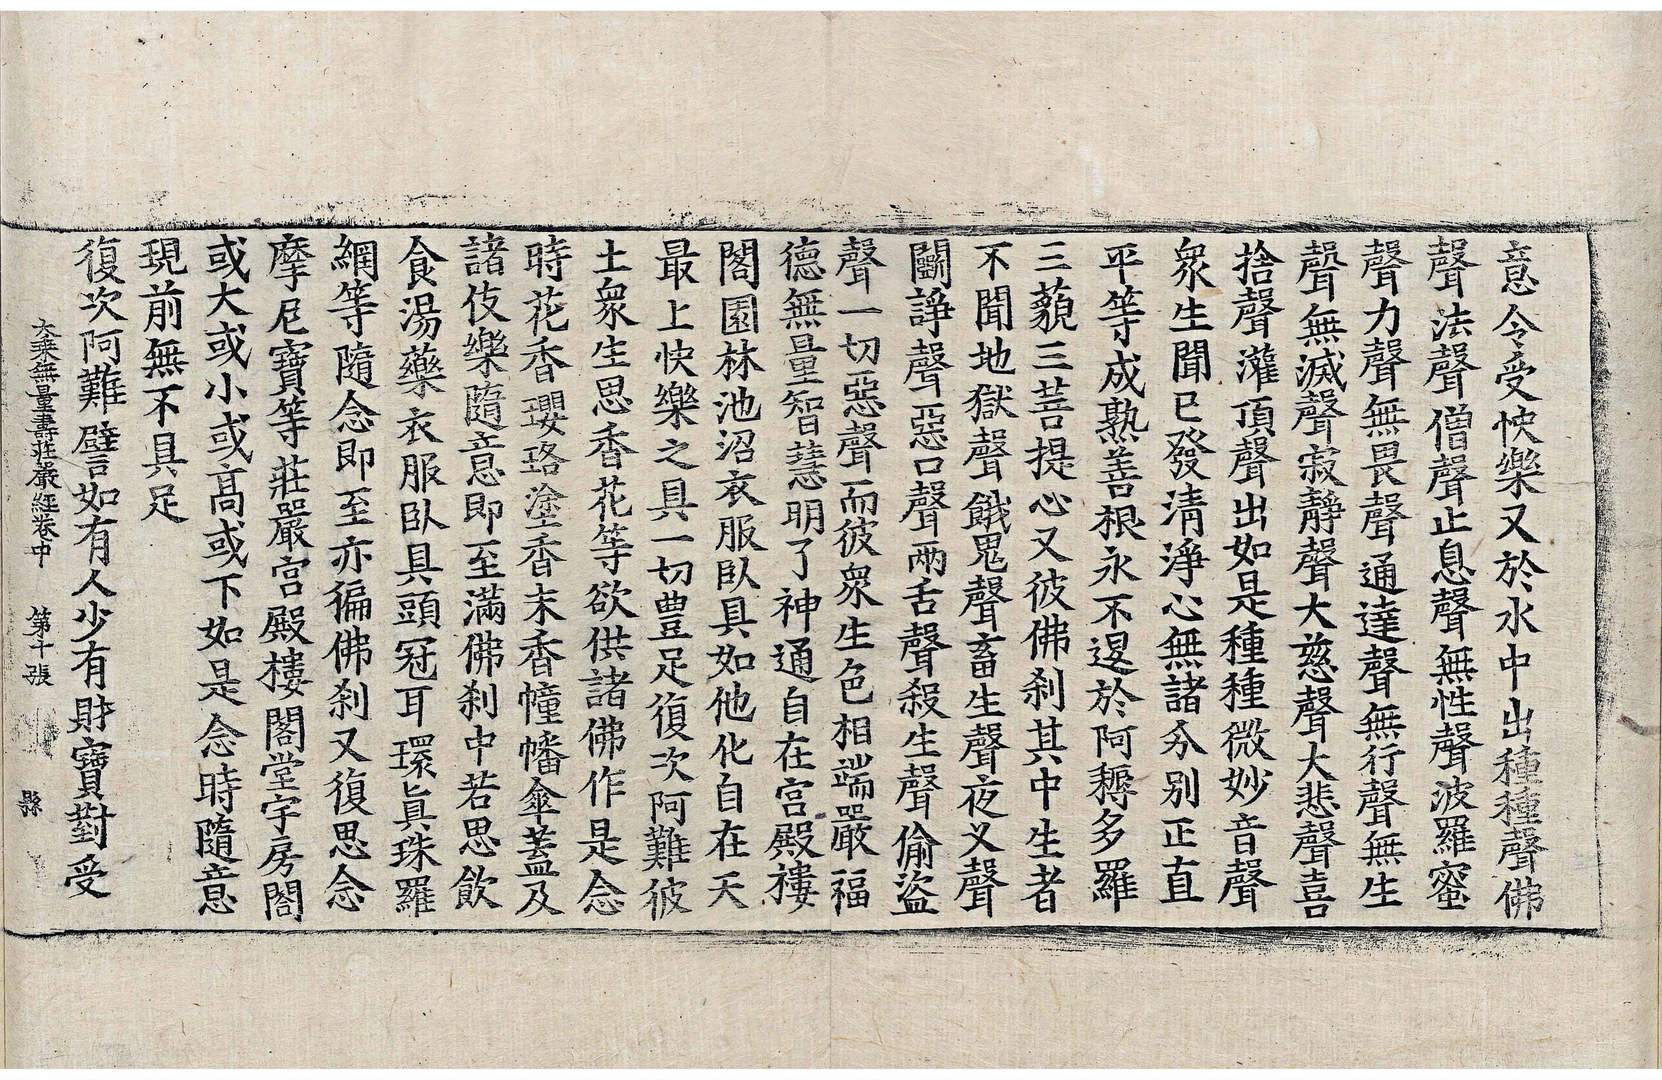 意令受快樂又於水中出種種聲佛
聲法聲僧聲止息聲無性聲波羅蜜
聲力聲無畏聲通達聲無行聲無生
聲無滅聲寂靜聲大慈聲大悲聲喜
捨聲灌頂聲出如是種種微妙音聲
衆生聞已發清淨心無諸分別正直
平等成熟善根永不退於阿耨多羅
三藐三菩提心又彼佛刹其中生者
不聞地獄聲餓鬼聲畜生聲夜叉聲
鬭諍聲惡口聲兩舌聲殺生聲偷盜
聲一切惡聲而彼衆生色相端嚴福
德無量智慧明了神通自在宮殿樓
閣園林池沼衣服臥具如他化自在天
最上快樂之具一切豊足復次阿難彼
土衆生思香花等欲供諸佛作是念
時花香瓔珞塗香末香幢幡傘蓋及
諸伎樂隨意即至滿佛刹中若思飲
食湯藥衣服臥具頭冠耳環真珠羅
網等隨念即至亦徧佛刹又復思念
摩尼寶等莊嚴宮殿樓閣堂宇房閤
或大或小或高或下如是念時隨意
現前無不具足
大乘無量壽莊嚴經卷中 第十張 縣
復次阿難譬如有人少有財寶對受